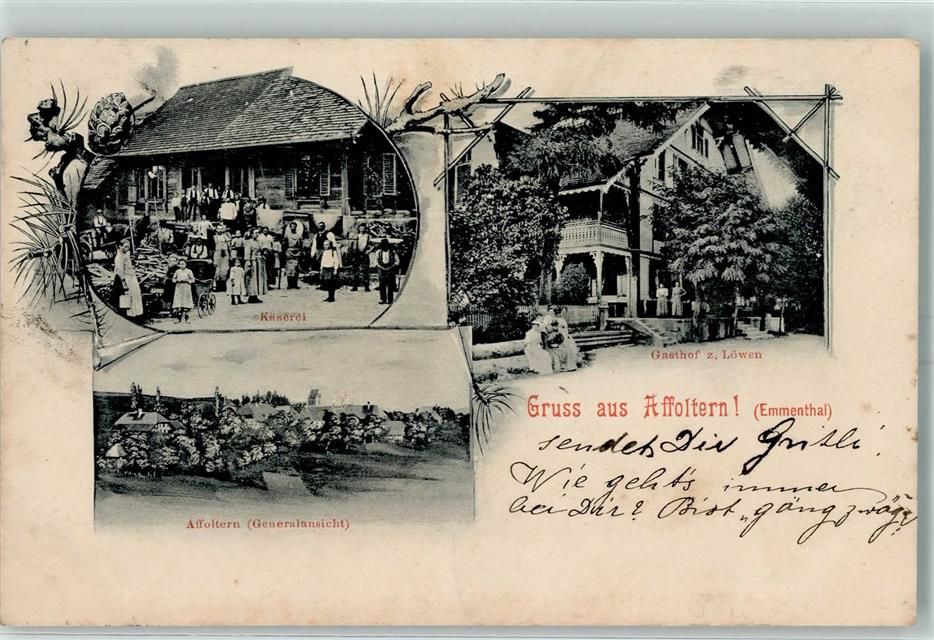 Käserei
Gasthof z. Löwen
Gruss aus Affoltern! (Emmenthal)
sendet Dir Gritli.
Wie geht's immer
bei Dir? Bist „gäng zwäg?
Affoltern (Generalansicht)